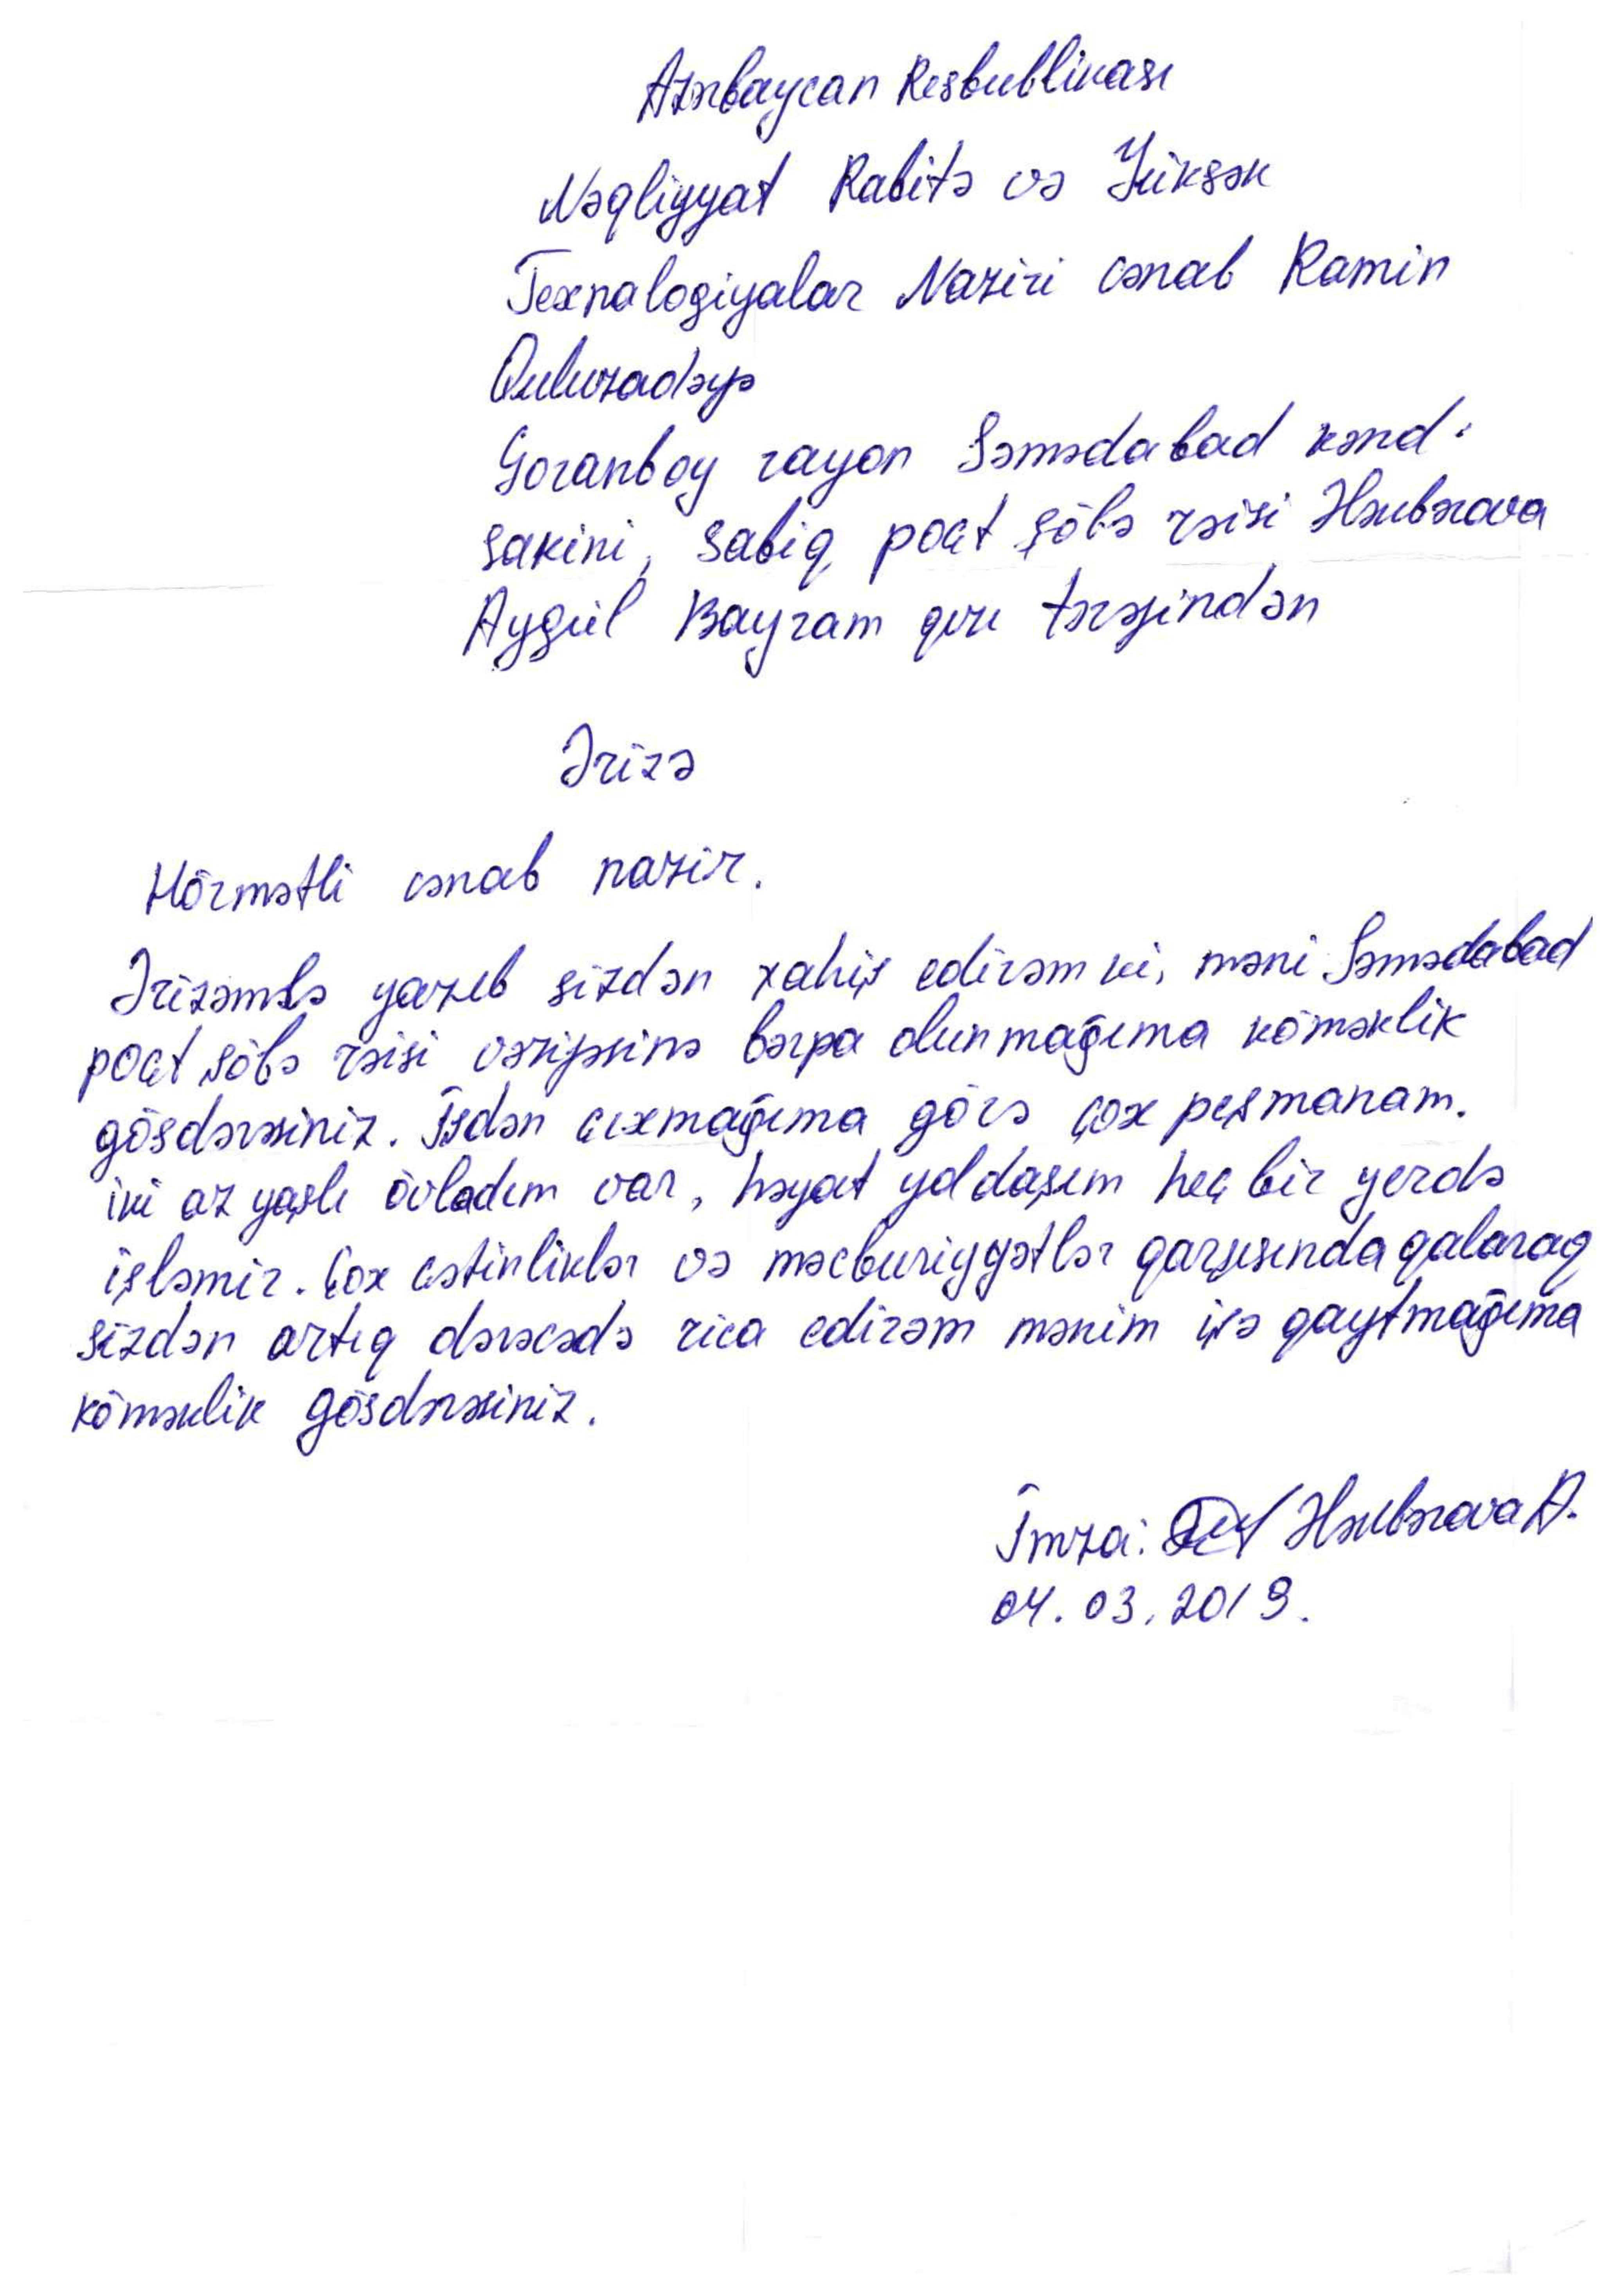 Azərbaycan Resbublikası
Nəqliyyat Rabitə və Yüksək
Texnalogiyalar Naziri cənab Ramin
Quluzadəyə
Goranboy rayon Səmədabad kənd
sakini, sabiq poçt şöbə rəisi Ələkbərova
Aygül Bayram qızı tərəfindən
Ərizə
Hörmətli cənab nazir.
Ərizəmlə yazıb sizdən xahiş edirəm ki, məni Səmədabad
poçt şöbə rəisi vəzifəsinə bərpa olunmağıma köməklik
gösdərəsiniz. İşdən çıxmağıma görə çox peşmanam.
iki az yaşlı övladım var, həyat yoldaşım heç bir yerdə
işləmir. Çox çətinliklər və məcburiyyətlər qarşısında qalaraq
sizdən artıq dərəcədə rica edirəm mənim işə qaytmağıma
köməklik gösdərəsiniz.
İmza: Ələkbərova A.
04.03.2019.